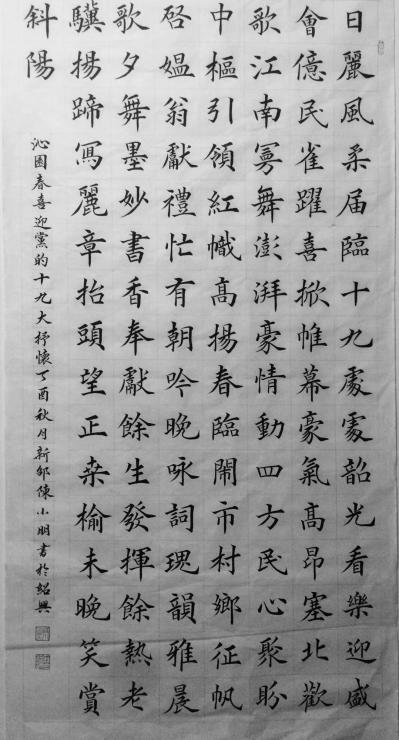 日麗風柔届臨十九處處韶光看樂迎盛
會億民雀躍喜掀帷幕豪氣高昂塞北歡
歌江南舞澎湃豪情動四方民心聚盼
中樞引領紅幟高揚春臨鬧市村鄉征帆
啓媪翁獻禮忙有朝吟晚咏詞瑰韻雅晨
歌夕舞墨妙書香奉獻餘生發揮餘熱老
驥揚蹄寫麗章抬頭望正桑榆未晚笑賞
斜陽
沁園春喜迎黨的十九大抒懷丁酉秋月新邨陳小明書於紹興